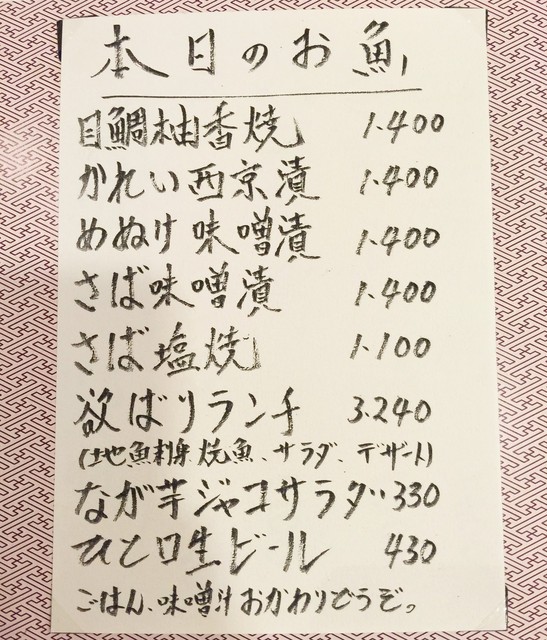 本日のお魚
目鯛柚香焼 1.400
かれい西京漬 1.400
めぬけ味噌漬 1.400
さば味噌漬 1.400
さば塩焼 1.100
欲ばりランチ 3.240
(地魚刺身、焼魚、サラダ、デザート)
なが芋ジャコサラダ‥330
ひと口生ビール 430
ごはん、味噌汁おかわりどうぞ。